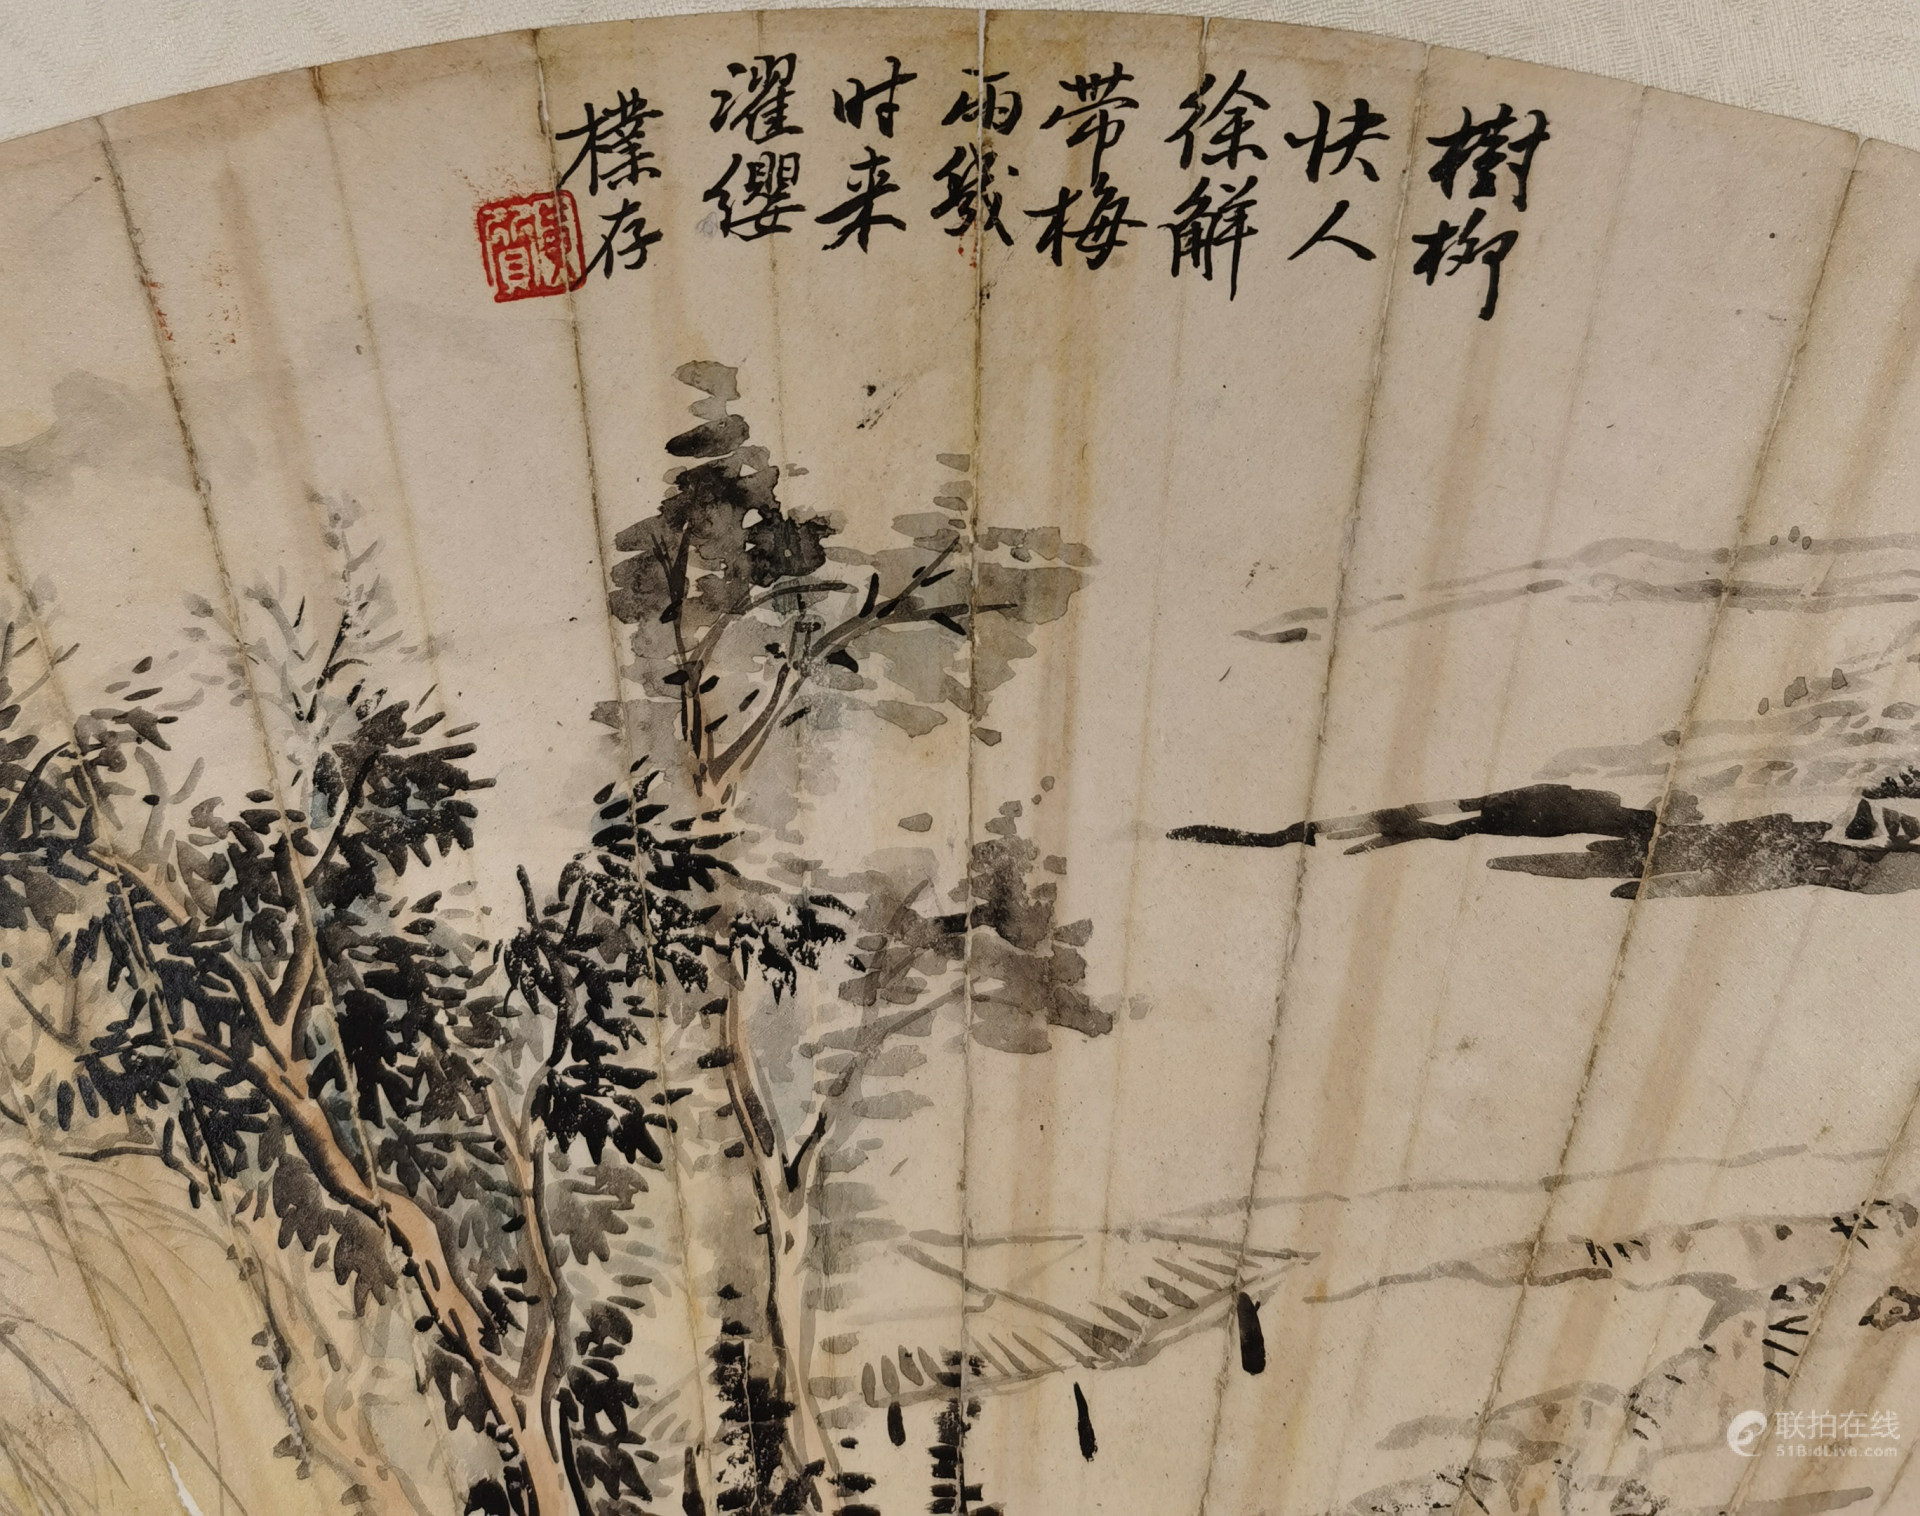 樹柳
快人
徐解
带梅
雨幾
时来
濯纓
樸存
質
联拍在线
518bidLive.com